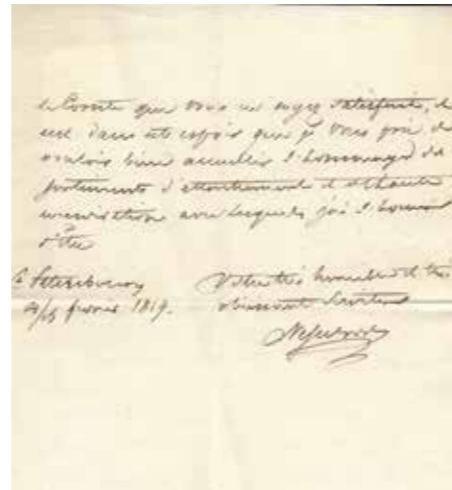 le Comte que vous en soyez satisfaite, et
c'est dans cet espoir que je vous prie de
vouloir bien accueillir l'hommage des
sentiments d'attachement et de haute
considération avec lesquels j'ai l'honneur
d'être
St. Petersbourg
Votre très humble et très
février 1819.
obéissant Serviteur
Nesselrode